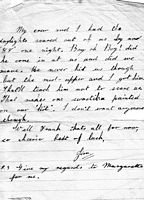 My crew and I had the
daylights scared out of us by an
88 one night. Boy oh Boy! did
he come in at us and did we
move. He never hit us though
but the mid-upper and I got him
That'll teach him not to scare us
That makes one swastika painted
on our "kite". I don't want anymore
though.
Well Frank that's all for now,
so cheerio & best of luck,
Jim
P.S. Give my regards to Margaretta
for me.